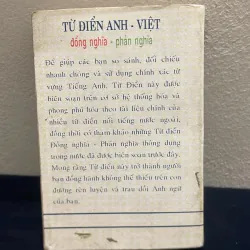 TỪ ĐIỂN ANH - VIỆT
đồng nghĩa - phản nghĩa
Để giúp các bạn so sánh, đối chiếu
nhanh chóng và sử dụng chính xác từ
vựng Tiếng Anh. Từ Điển này được
biên soạn trên cơ sở hệ thống hóa và
phong phú hóa theo tài liệu chính của
nhiều từ điển nổi tiếng nước ngoài,
đồng thời có tham khảo những Từ điển
Đồng nghĩa - Phản nghĩa thông dụng
trong nước đã được biên soạn trước đây.
Mong rằng Từ điển này trở thành người
bạn đồng hành không thể thiếu trên con
đường rèn luyện và trau dồi Anh ngữ
của bạn.